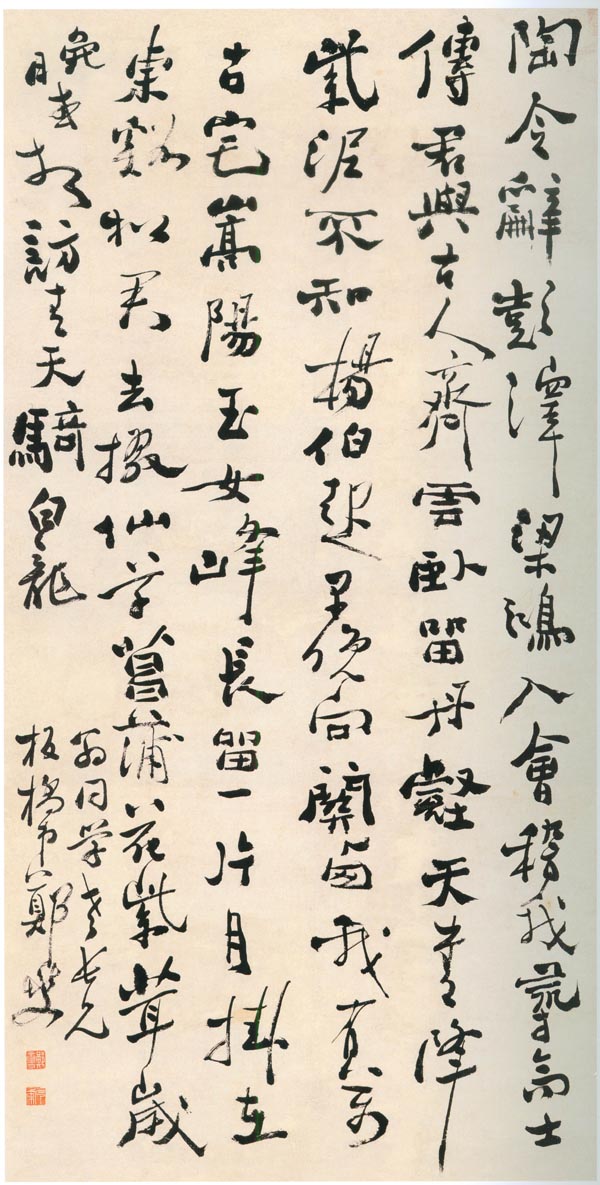 陶令辭彭澤梁鴻入會稽我尋高士
傳君與古人齊雲臥留丹壑天書降
紫泥不知楊伯起早晚向關西我有萬
古宅嵩陽玉女峰長留一片月掛在
東谿松君去掇仙草菖蒲花紫茸歲
晚或相訪青天騎白龍
翁同學老長兄
板橋弟鄭燮